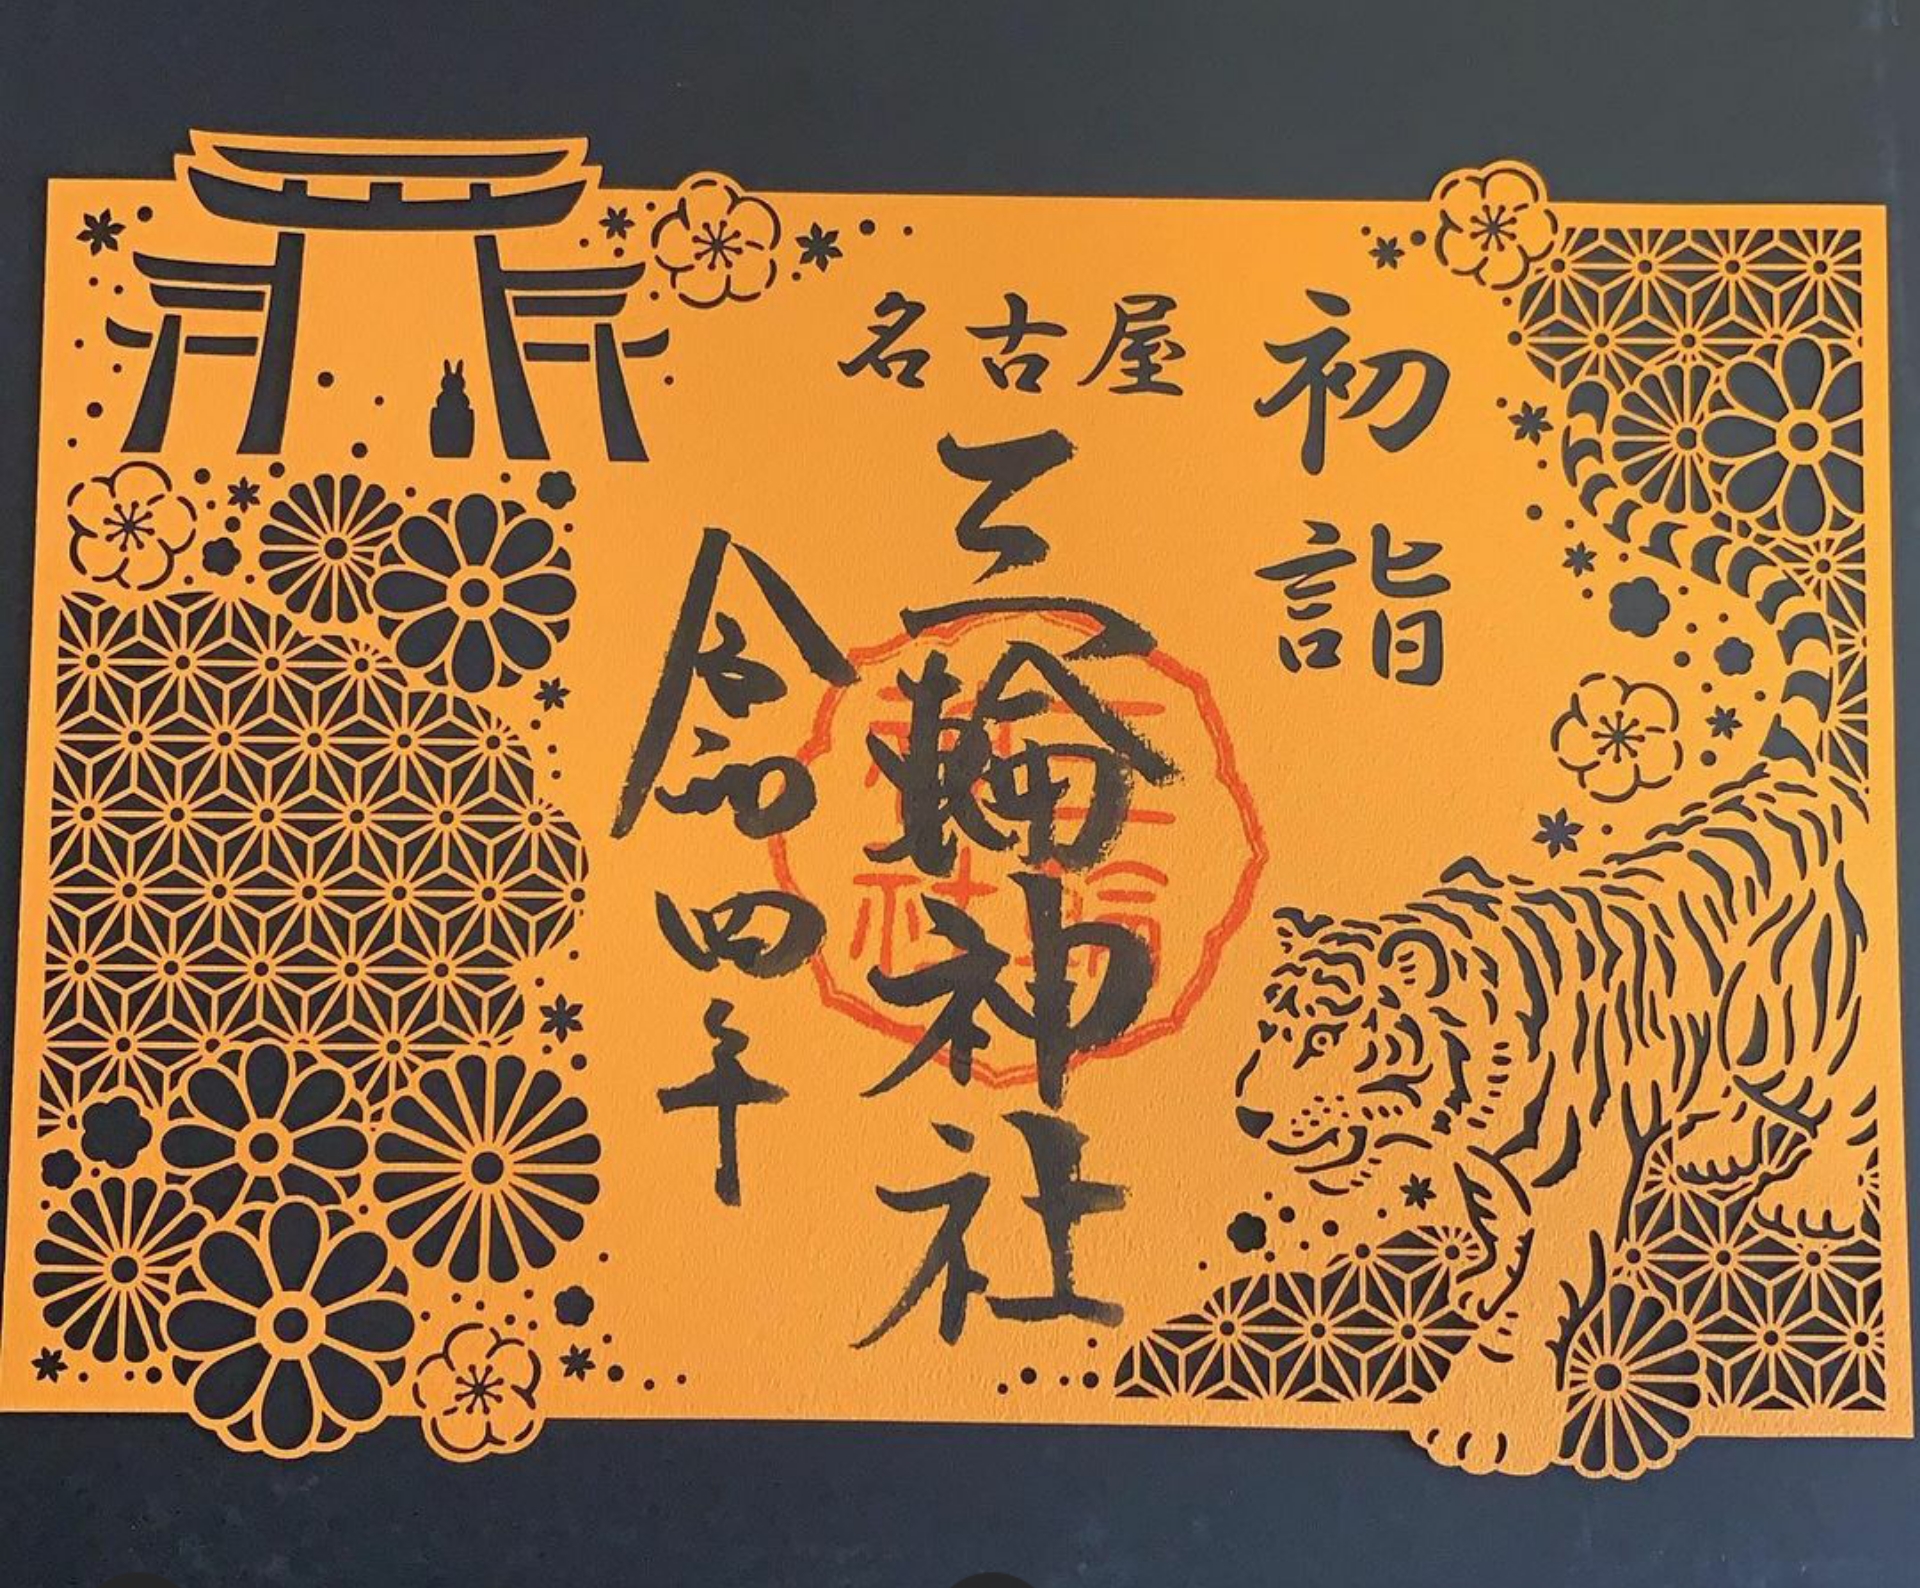 初詣
名古屋
三輪神社
令和四年
三輪神社